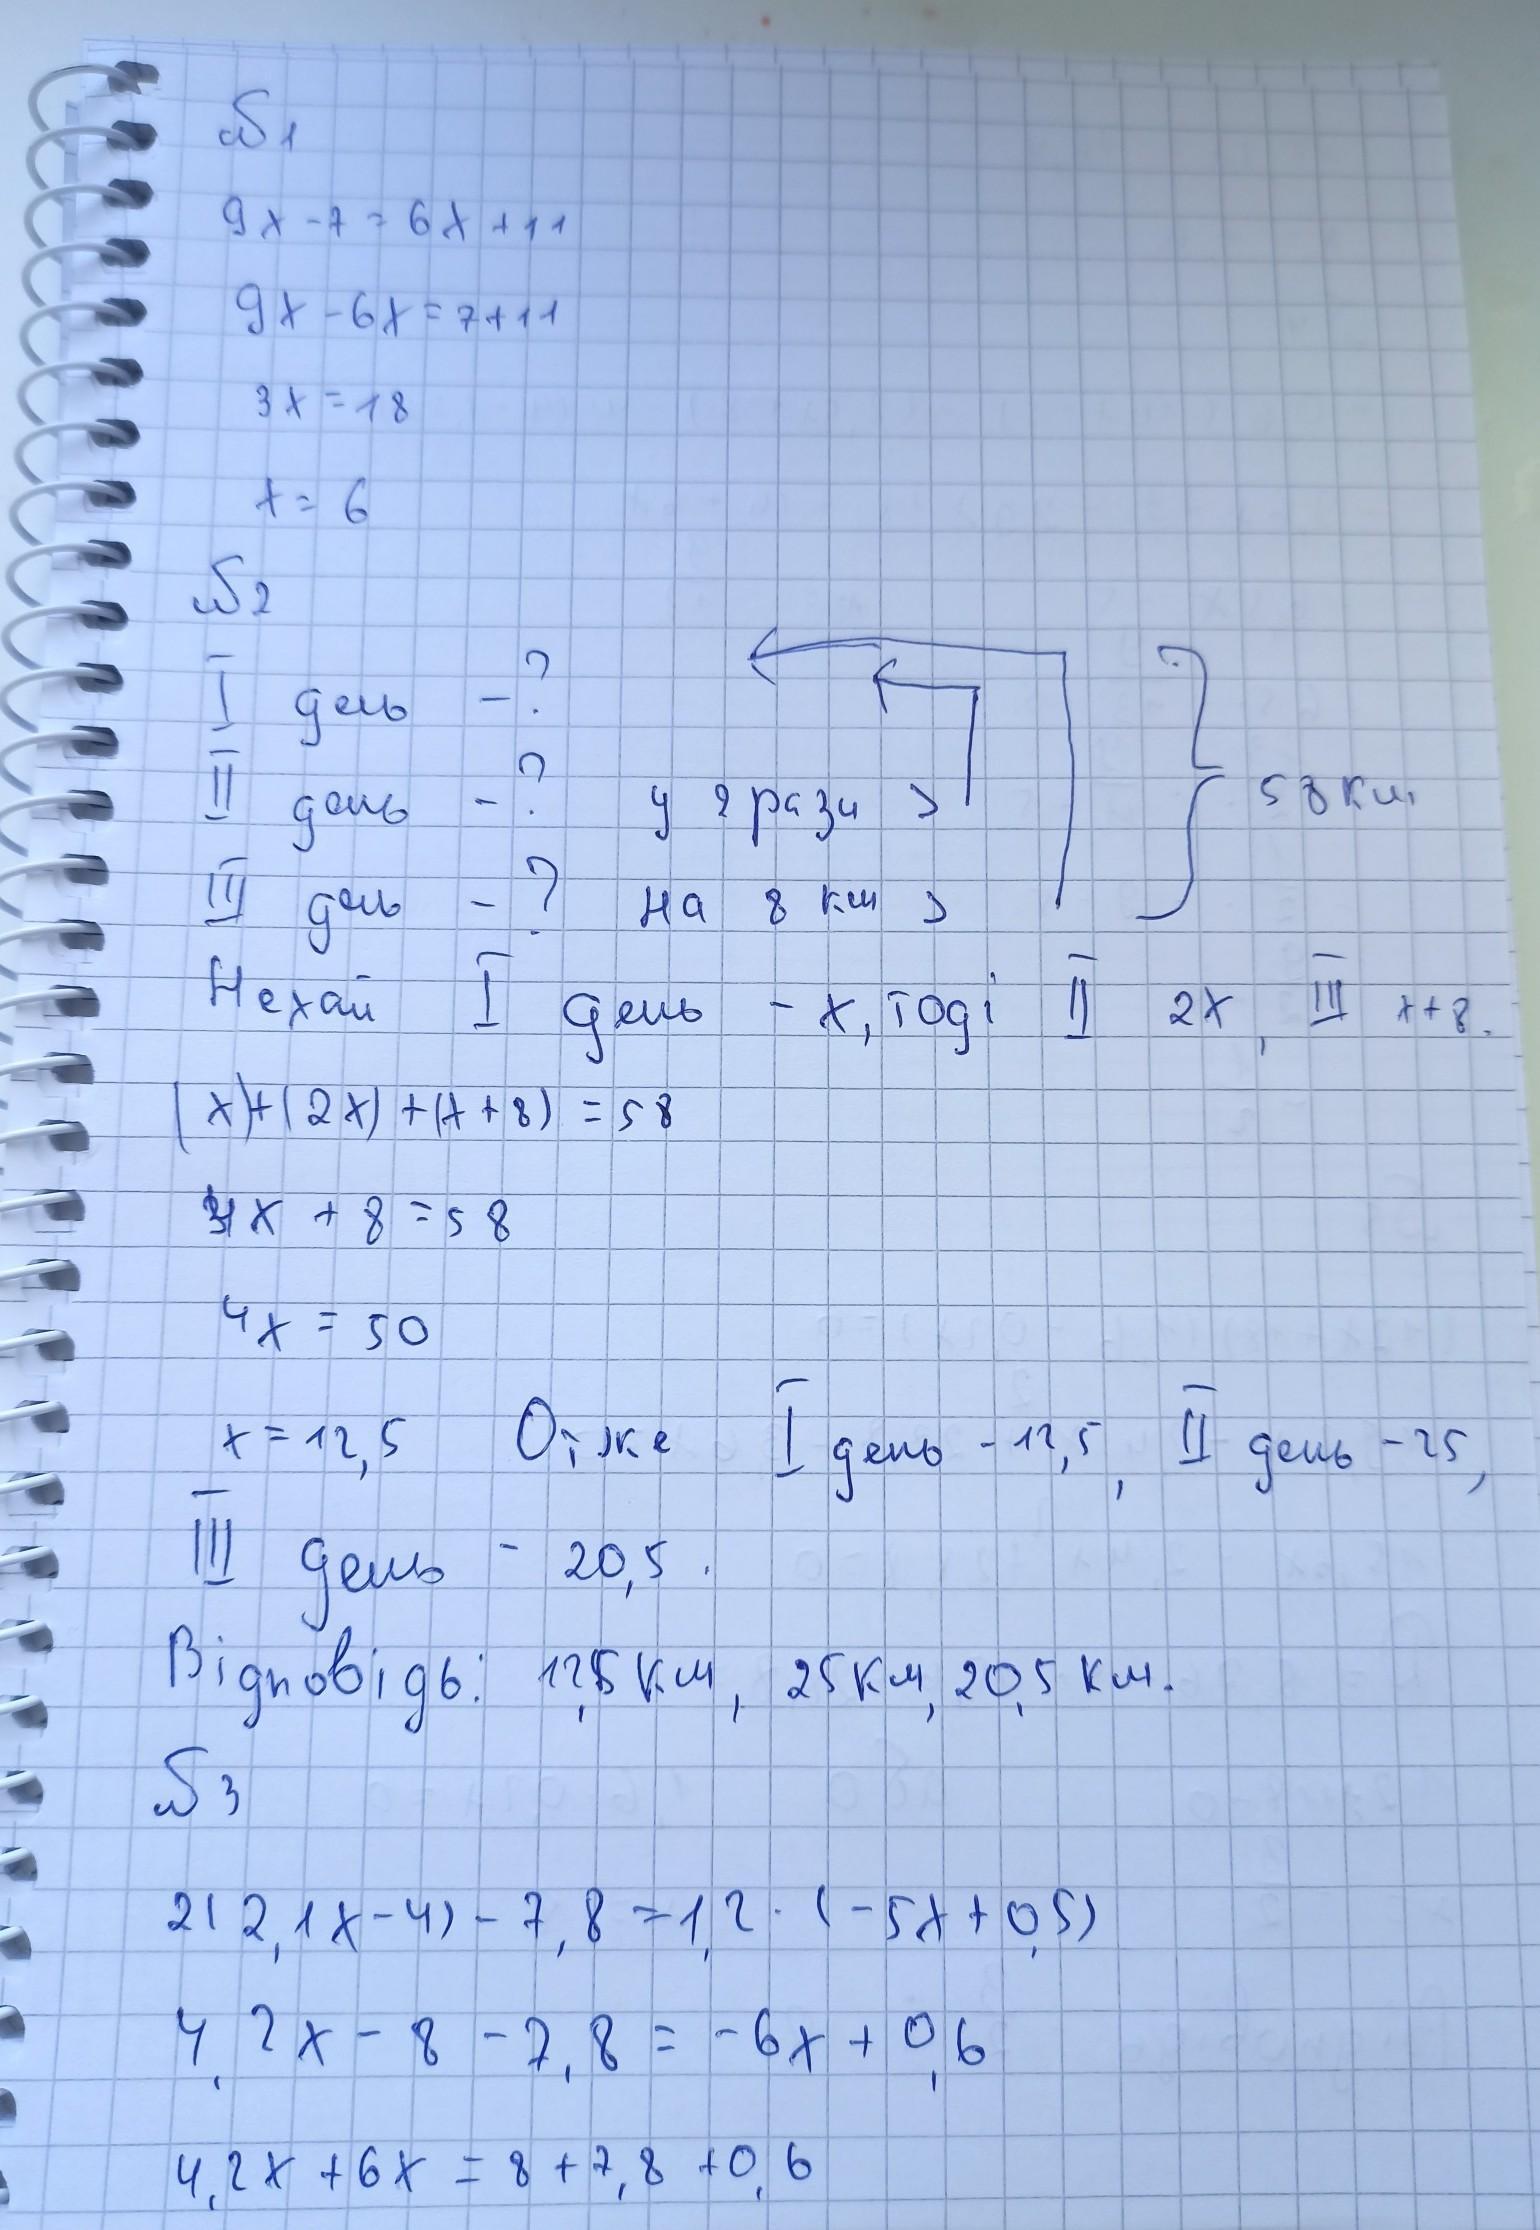 №1
9x-7=6x+11
9x-6x=7+11
3x=18
x=6
№2
I день -?
II день -? у 2 рази >
58 км
III день -? на 8 км >
Нехай I день - x, тоді II 2x, III x+8.
(x)+(2x)+(x+8)=58
4x+8=58
4x=50
x=12,5 Отже I день - 12,5, II день - 25,
III день - 20,5.
Відповідь: 12,5 км, 25 км, 20,5 км.
№3
2(2,1x-4)-7,8=1,2·(-5x+0,5)
4,2x-8-7,8=-6x+0,6
4,2x+6x=8+7,8+0,6